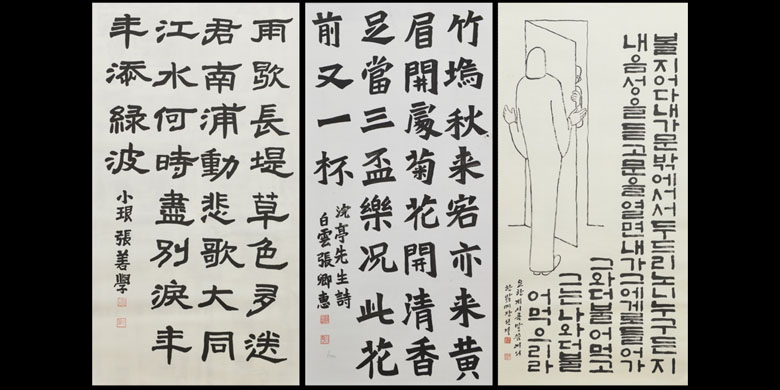 雨歇長堤草色多送
君南浦動悲歌大同
江水何時盡別淚年
年添綠波
小珢 張善學
竹塢秋来客亦来黄
眉開處菊花開清香
足當三盃樂况此花
前又一杯
沈亭先生詩
白雲張卿惠
볼지어다내가문밖에서서두드리노니누구든지
내음성을듣고문을열면내가그에게로들어가
그와더불어먹고
그는나와더불
어먹으리라
요한계시록말씀에서